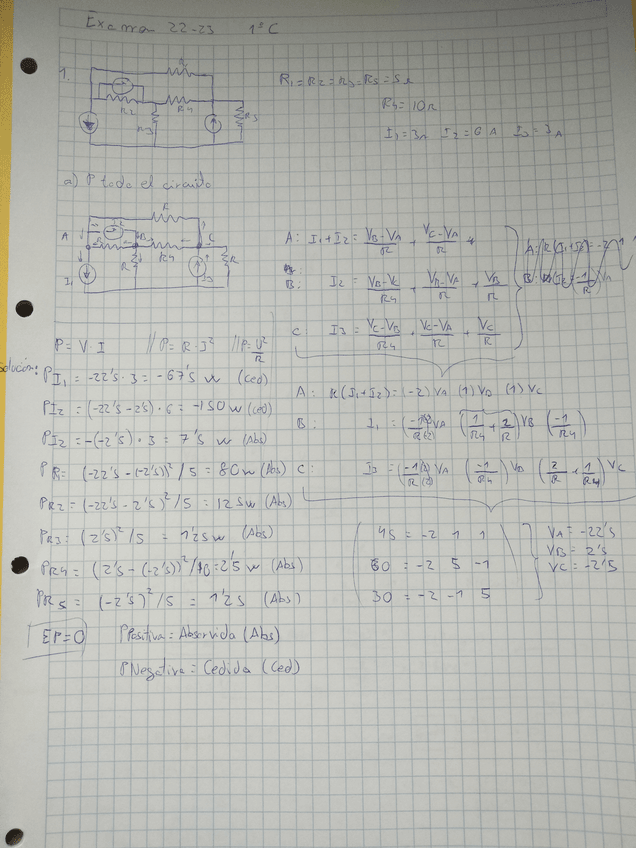 Examen 22-23 1ºC
1.
R
R2
R4
R3
R5
R1=R2=R3=R5=5Ω
R4=10Ω
I1=3A I2=6A I3=3A
a) P todo el circuito
A
B
C
R
R4
R
R
I1
I3
A: I1+I2 = (VB-VA)/R + (VC-VA)/R
B: I2 = (VB-VC)/R4 + (VB-VA)/R + VB/R
C: I3 = (VC-VB)/R4 + (VC-VA)/R + VC/R
P=V·I // P=R·I² // P=V²/R
Solución:
PI1 = -22'5·3 = -67'5 w (Ced)
PI2 = (-22'5-2'5)·6 = -150w (Ced)
PI2 = -(-2'5)·3 = 7'5 w (Abs)
PR1 = (-22'5-(-2'5))²/5 = 80w (Abs)
PR2 = (-22'5-2'5)²/5 = 125w (Abs)
PR3 = (2'5)²/5 = 1'25w (Abs)
PR4 = (2'5-(-2'5))²/10 = 2'5 w (Abs)
PR5 = (-2'5)²/5 = 1'25 (Abs)
ΣP=0
PPositiva = Absorvida (Abs)
PNegativa = Cedida (Ced)
A: R(I1+I2) = (-2) VA (1) VB (1) VC
B: I2 = (-1/R) VA (1/R4 + 2/R) VB (-1/R4)
C: I3 = (-1/R) VA (-1/R4) VB (2/R + 1/R4) VC
45 = -2 1 1
60 = -2 5 -1
30 = -2 -1 5
VA = -22'5
VB = 2'5
VC = -2'5